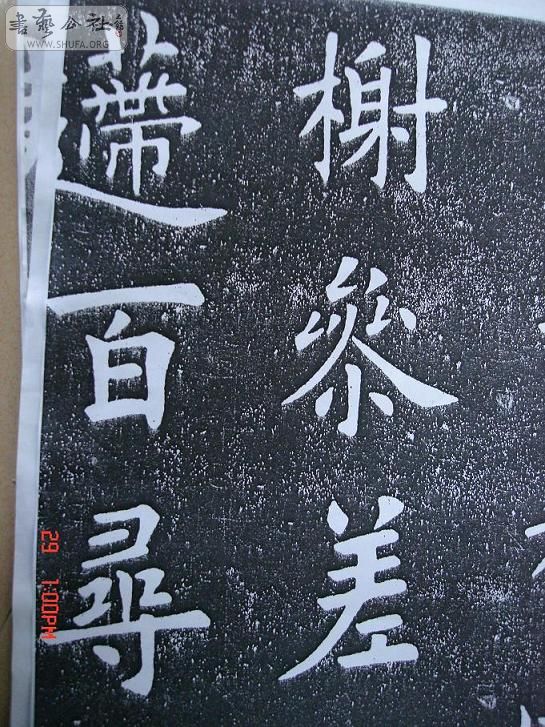 書藝公社
WWW.SHUFA.ORG
榭參差
遰百尋
29 1:00PM